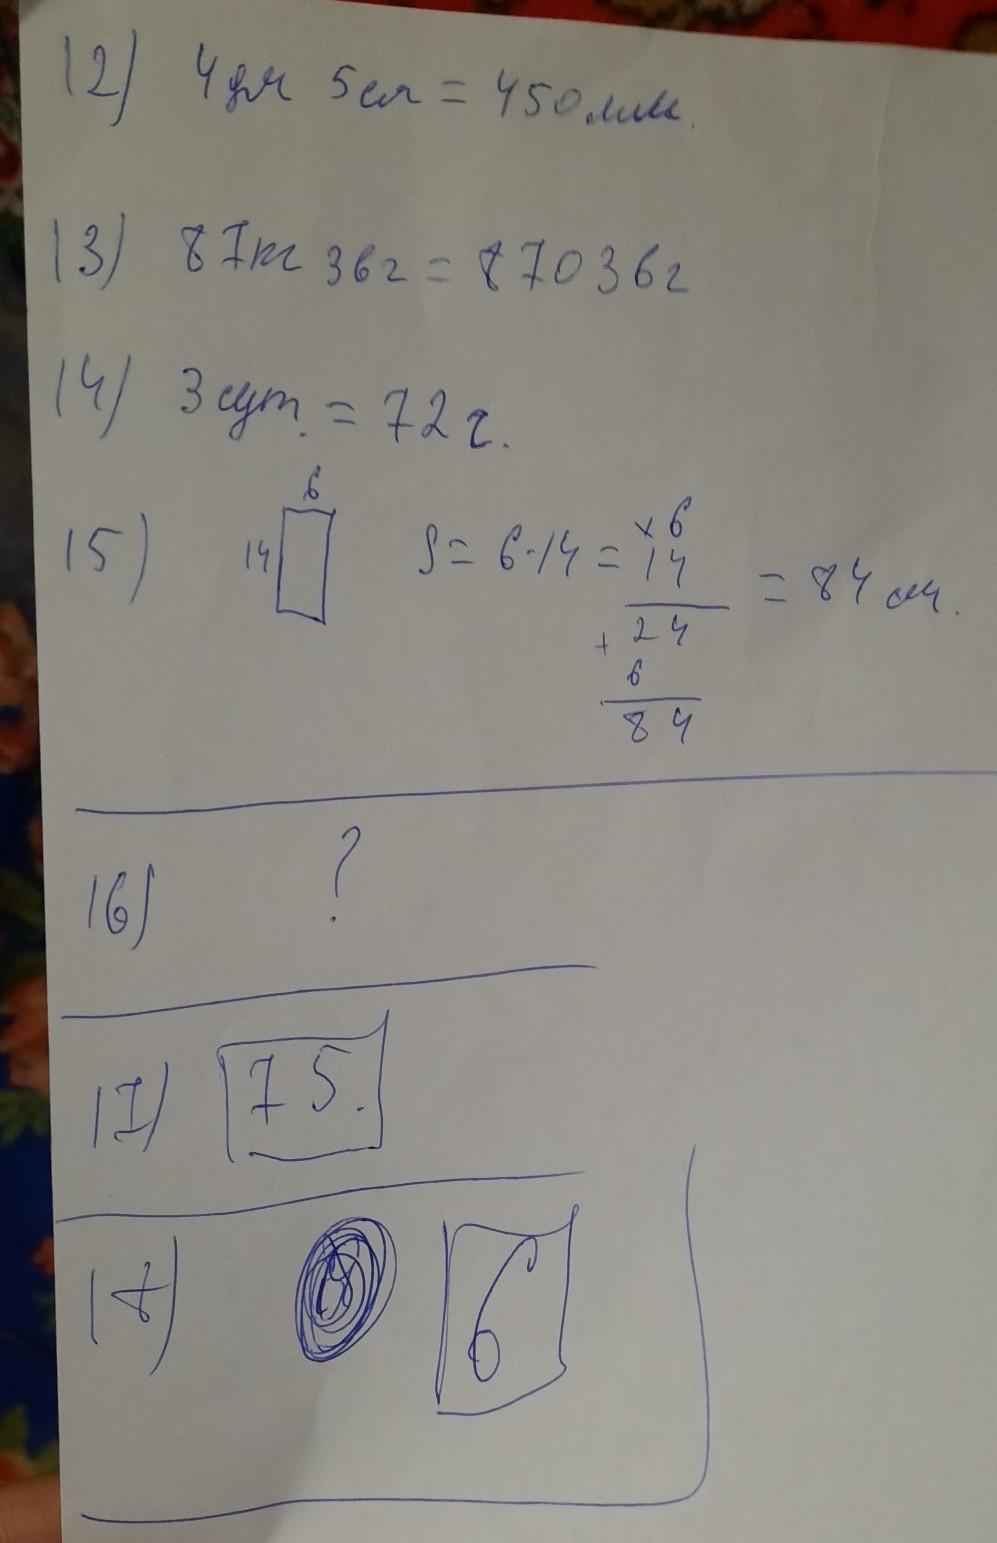 12) 4дм 5см = 450мм.
13) 87кг 36г = 87036г
14) 3 сут. = 72 ч.
6
15) 14 S = 6·14 = × 6
14
= 84 см.
+ 24
6
84
16) ?
17) 75.
18) 6